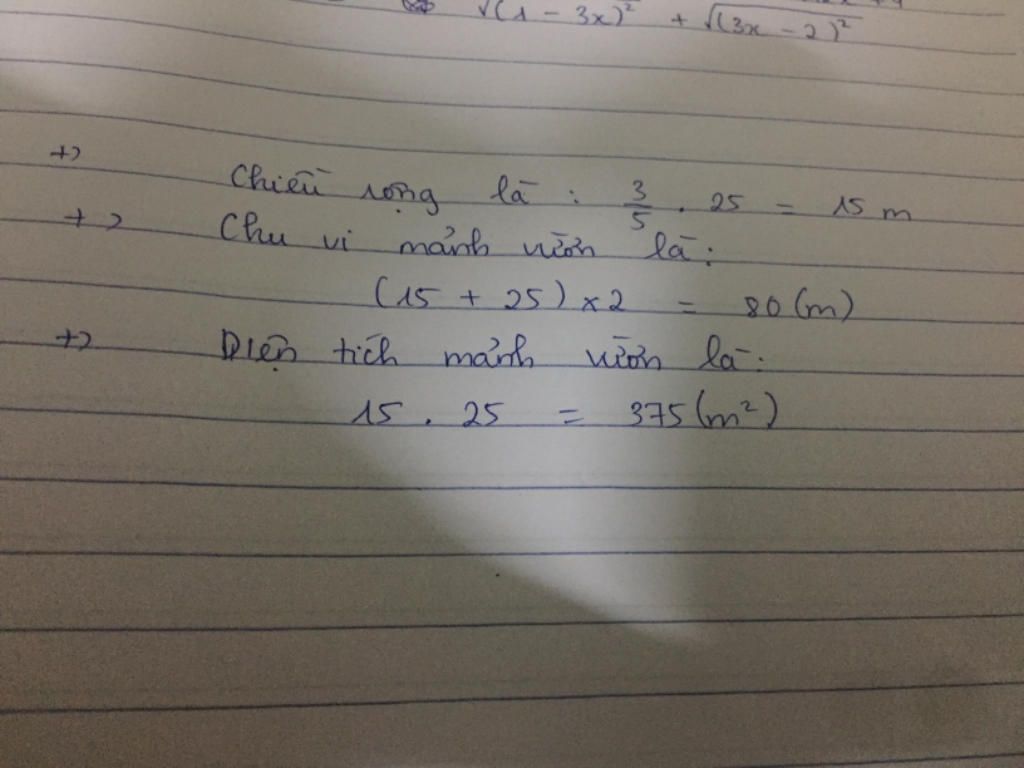 √(1 - 3x)² + √(3x - 2)²
+> Chiều rộng là : 3/5 . 25 = 15 m
+> Chu vi mảnh vườn là :
(15 + 25) x 2 = 80 (m)
+> Diện tích mảnh vườn là :
15 . 25 = 375 (m²)